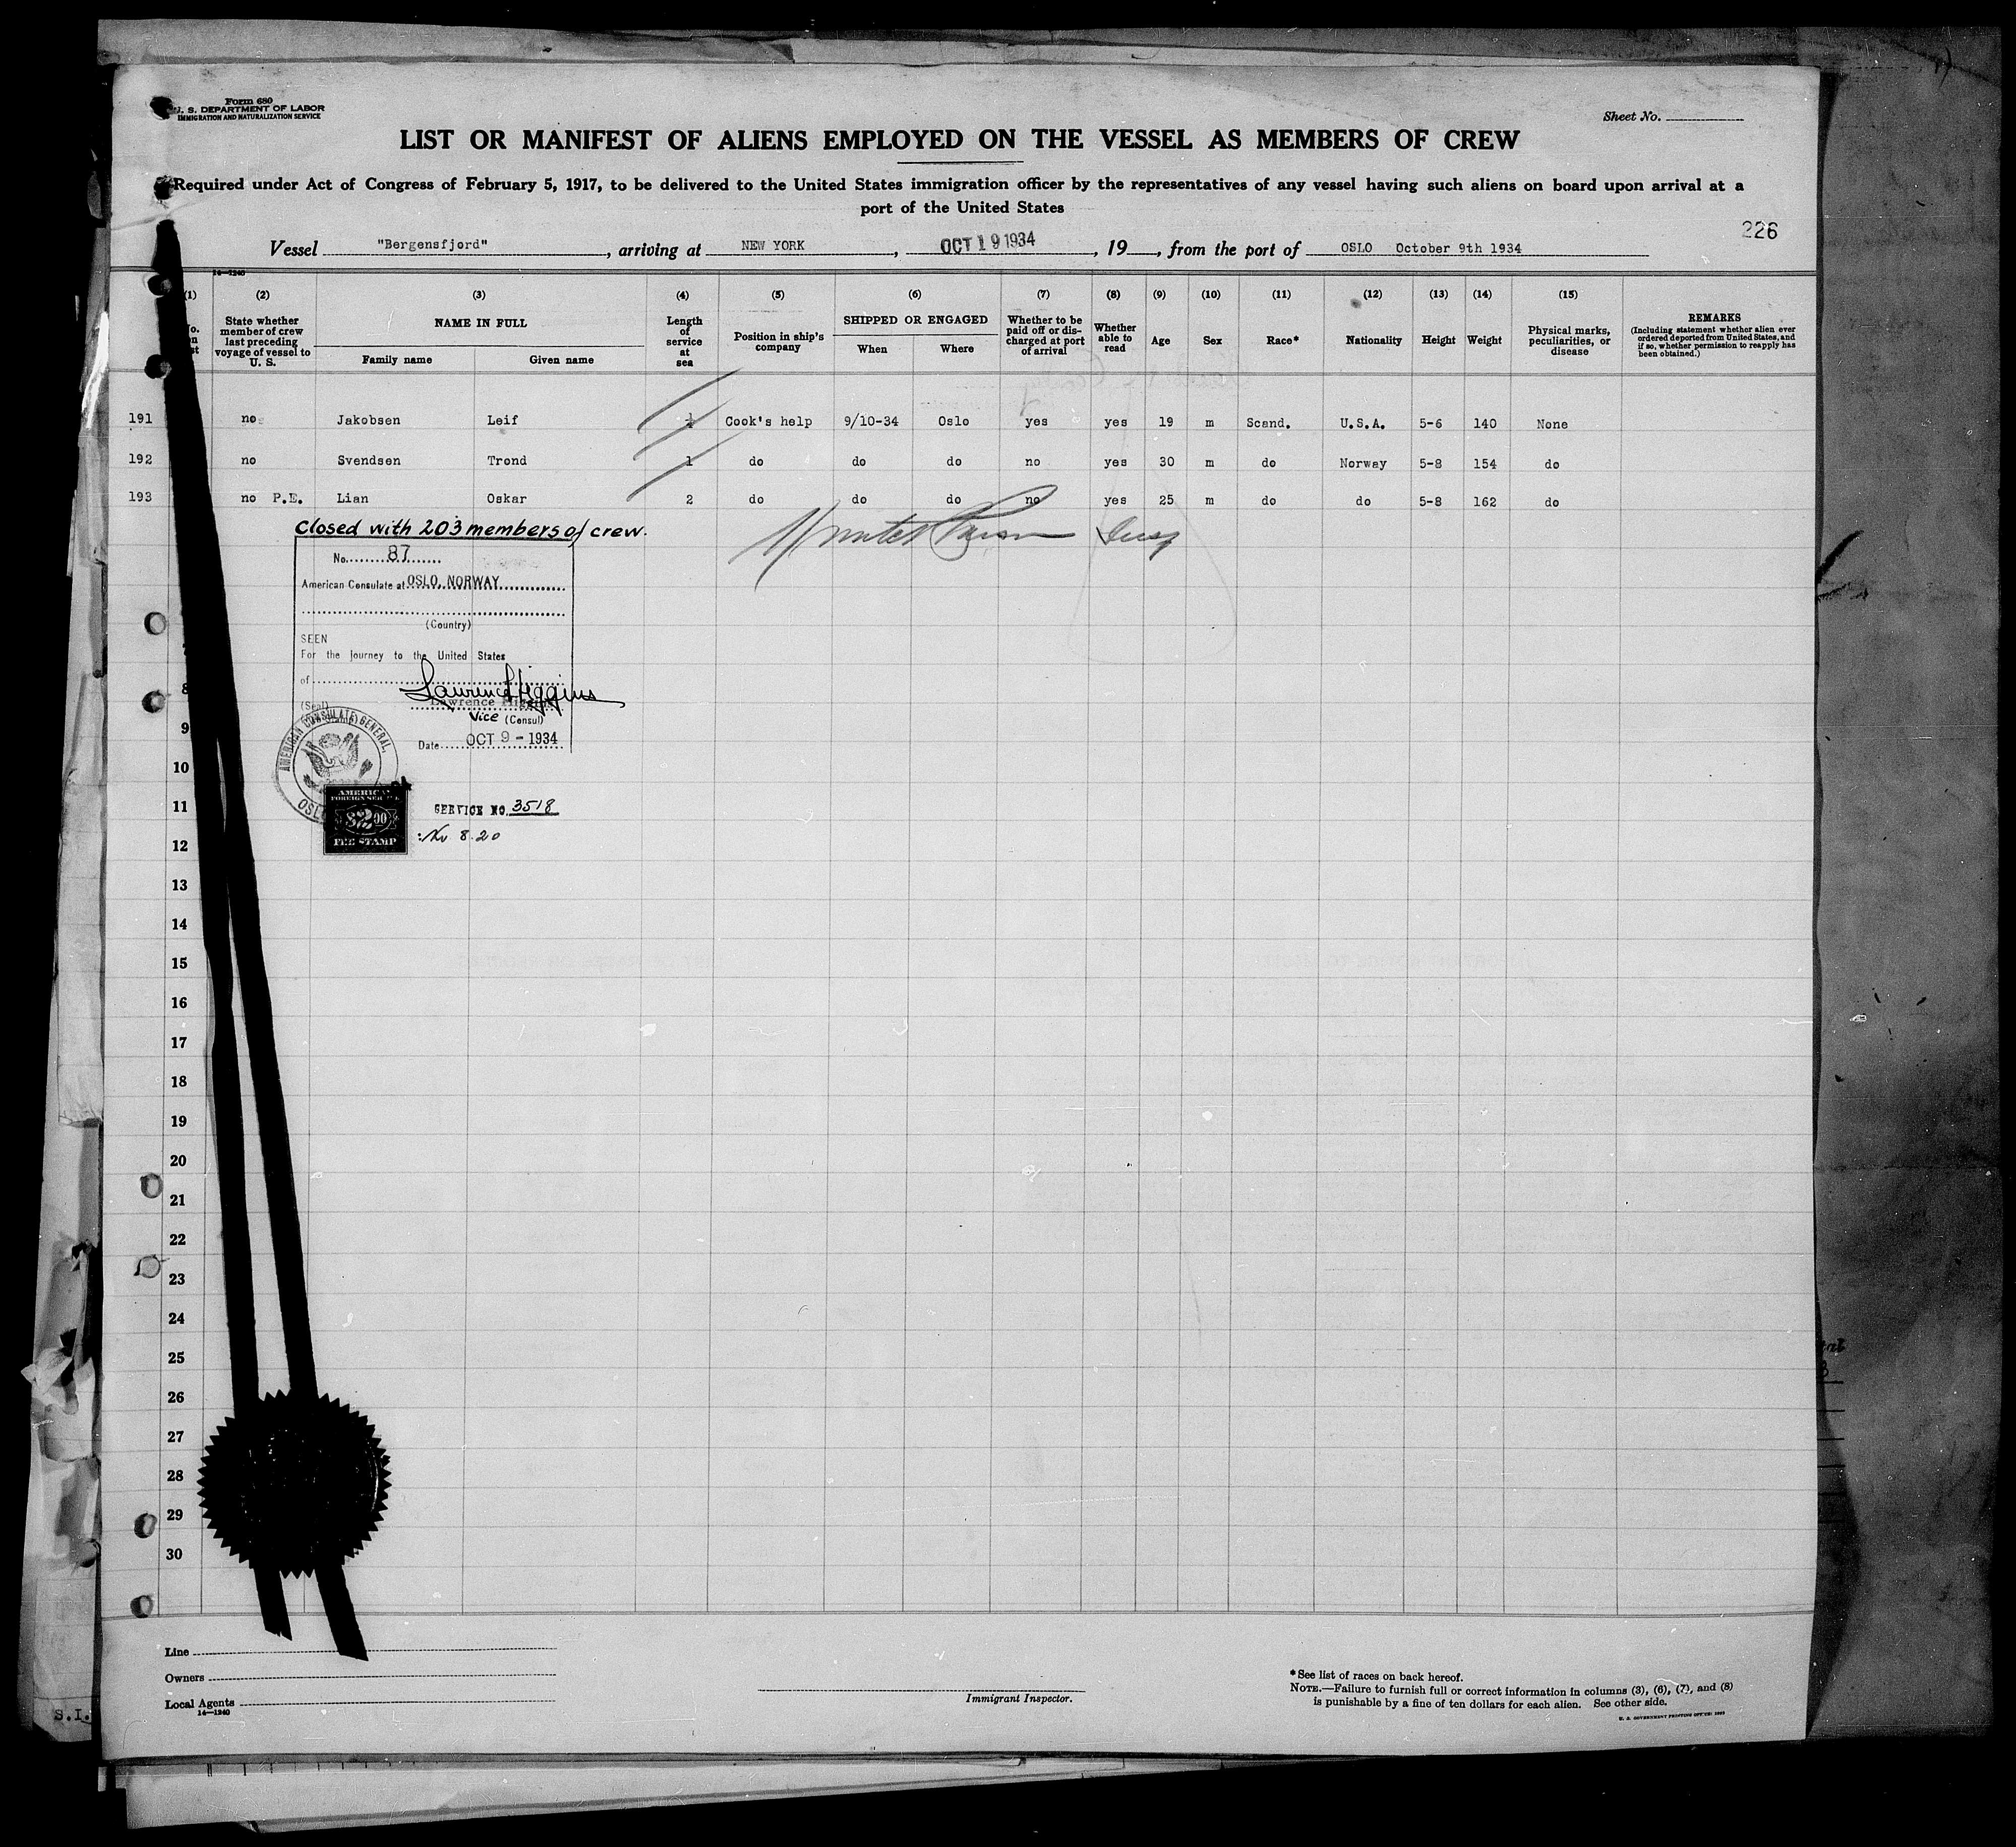 Form 680
U. S. DEPARTMENT OF LABOR
IMMIGRATION AND NATURALIZATION SERVICE
Sheet No.
LIST OR MANIFEST OF ALIENS EMPLOYED ON THE VESSEL AS MEMBERS OF CREW
Required under Act of Congress of February 5, 1917, to be delivered to the United States immigration officer by the representatives of any vessel having such aliens on board upon arrival at a
port of the United States
226
Vessel "Bergensfjord", arriving at NEW YORK, OCT 19 1934, 19, from the port of OSLO October 9th 1934
14—1240
(1) (2) (3) (4) (5) (6) (7) (8) (9) (10) (11) (12) (13) (14) (15)
State whether member of crew last preceding voyage of vessel to U. S.
NAME IN FULL
Family name Given name
Length of service at sea
Position in ship's company
SHIPPED OR ENGAGED
When Where
Whether to be paid off or discharged at port of arrival
Whether able to read
Age Sex Race* Nationality Height Weight
Physical marks, peculiarities, or disease
REMARKS
(Including statement whether alien ever ordered deported from United States, and if so, whether permission to reapply has been obtained.)
191 no Jakobsen Leif Cook's help 9/10-34 Oslo yes yes 19 m Scand. U.S.A. 5-6 140 None
192 no Svendsen Trond 1 do do do no yes 30 m do Norway 5-8 154 do
193 no P.E. Lian Oskar 2 do do do no yes 25 m do do 5-8 162 do
Closed with 203 members of crew.
No. 87
American Consulate at OSLO, NORWAY
(Country)
SEEN
For the journey to the United States
of
Lawrence Higgins
(Seal) Lawrence Higgins
Vice (Consul)
Date OCT 9 - 1934
AMERICAN CONSULATE GENERAL,
OSLO
AMERICAN
FOREIGN SERVICE
$2.00
FEE STAMP
SERVICE NO. 3518
8.20
8
9
10
11
12
13
14
15
16
17
18
19
20
21
22
23
24
25
26
27
28
29
30
Line
Owners
Local Agents
14—1240
Immigrant Inspector.
*See list of races on back hereof.
NOTE.—Failure to furnish full or correct information in columns (3), (6), (7), and (8)
is punishable by a fine of ten dollars for each alien. See other side.
S.I.